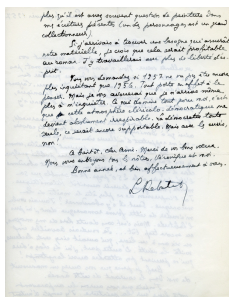 plus qu'il est assez souvent question de peinture dans
mes écrits (un des personnages est un grand
collectionneur).
Si j'arrivais à trouver une
matérielle, je crois que cela serait profitable
au roman. J'y travaillerais avec plus de liberté d'es-
prit.
Vous vous demandez si 1957 ne va pas être encore
plus inquiétant que 1956. Tout porte à le
penser. Mais je vous avouerai que je n'arrive même
plus à m'inquiéter. Ce qui domine tout pour moi, c'est
que cette atmosphère démocratique me
devient absolument irrespirable. La démocratie toute
seule, ce serait encore supportable. Mais avec les
non!
A bientôt, cher ami. Merci de vos bons vœux.
Nous vous envoyons tous les nôtres, Véronique et moi.
Bonne année, et bien affectueusement à vous.
L Rebatet